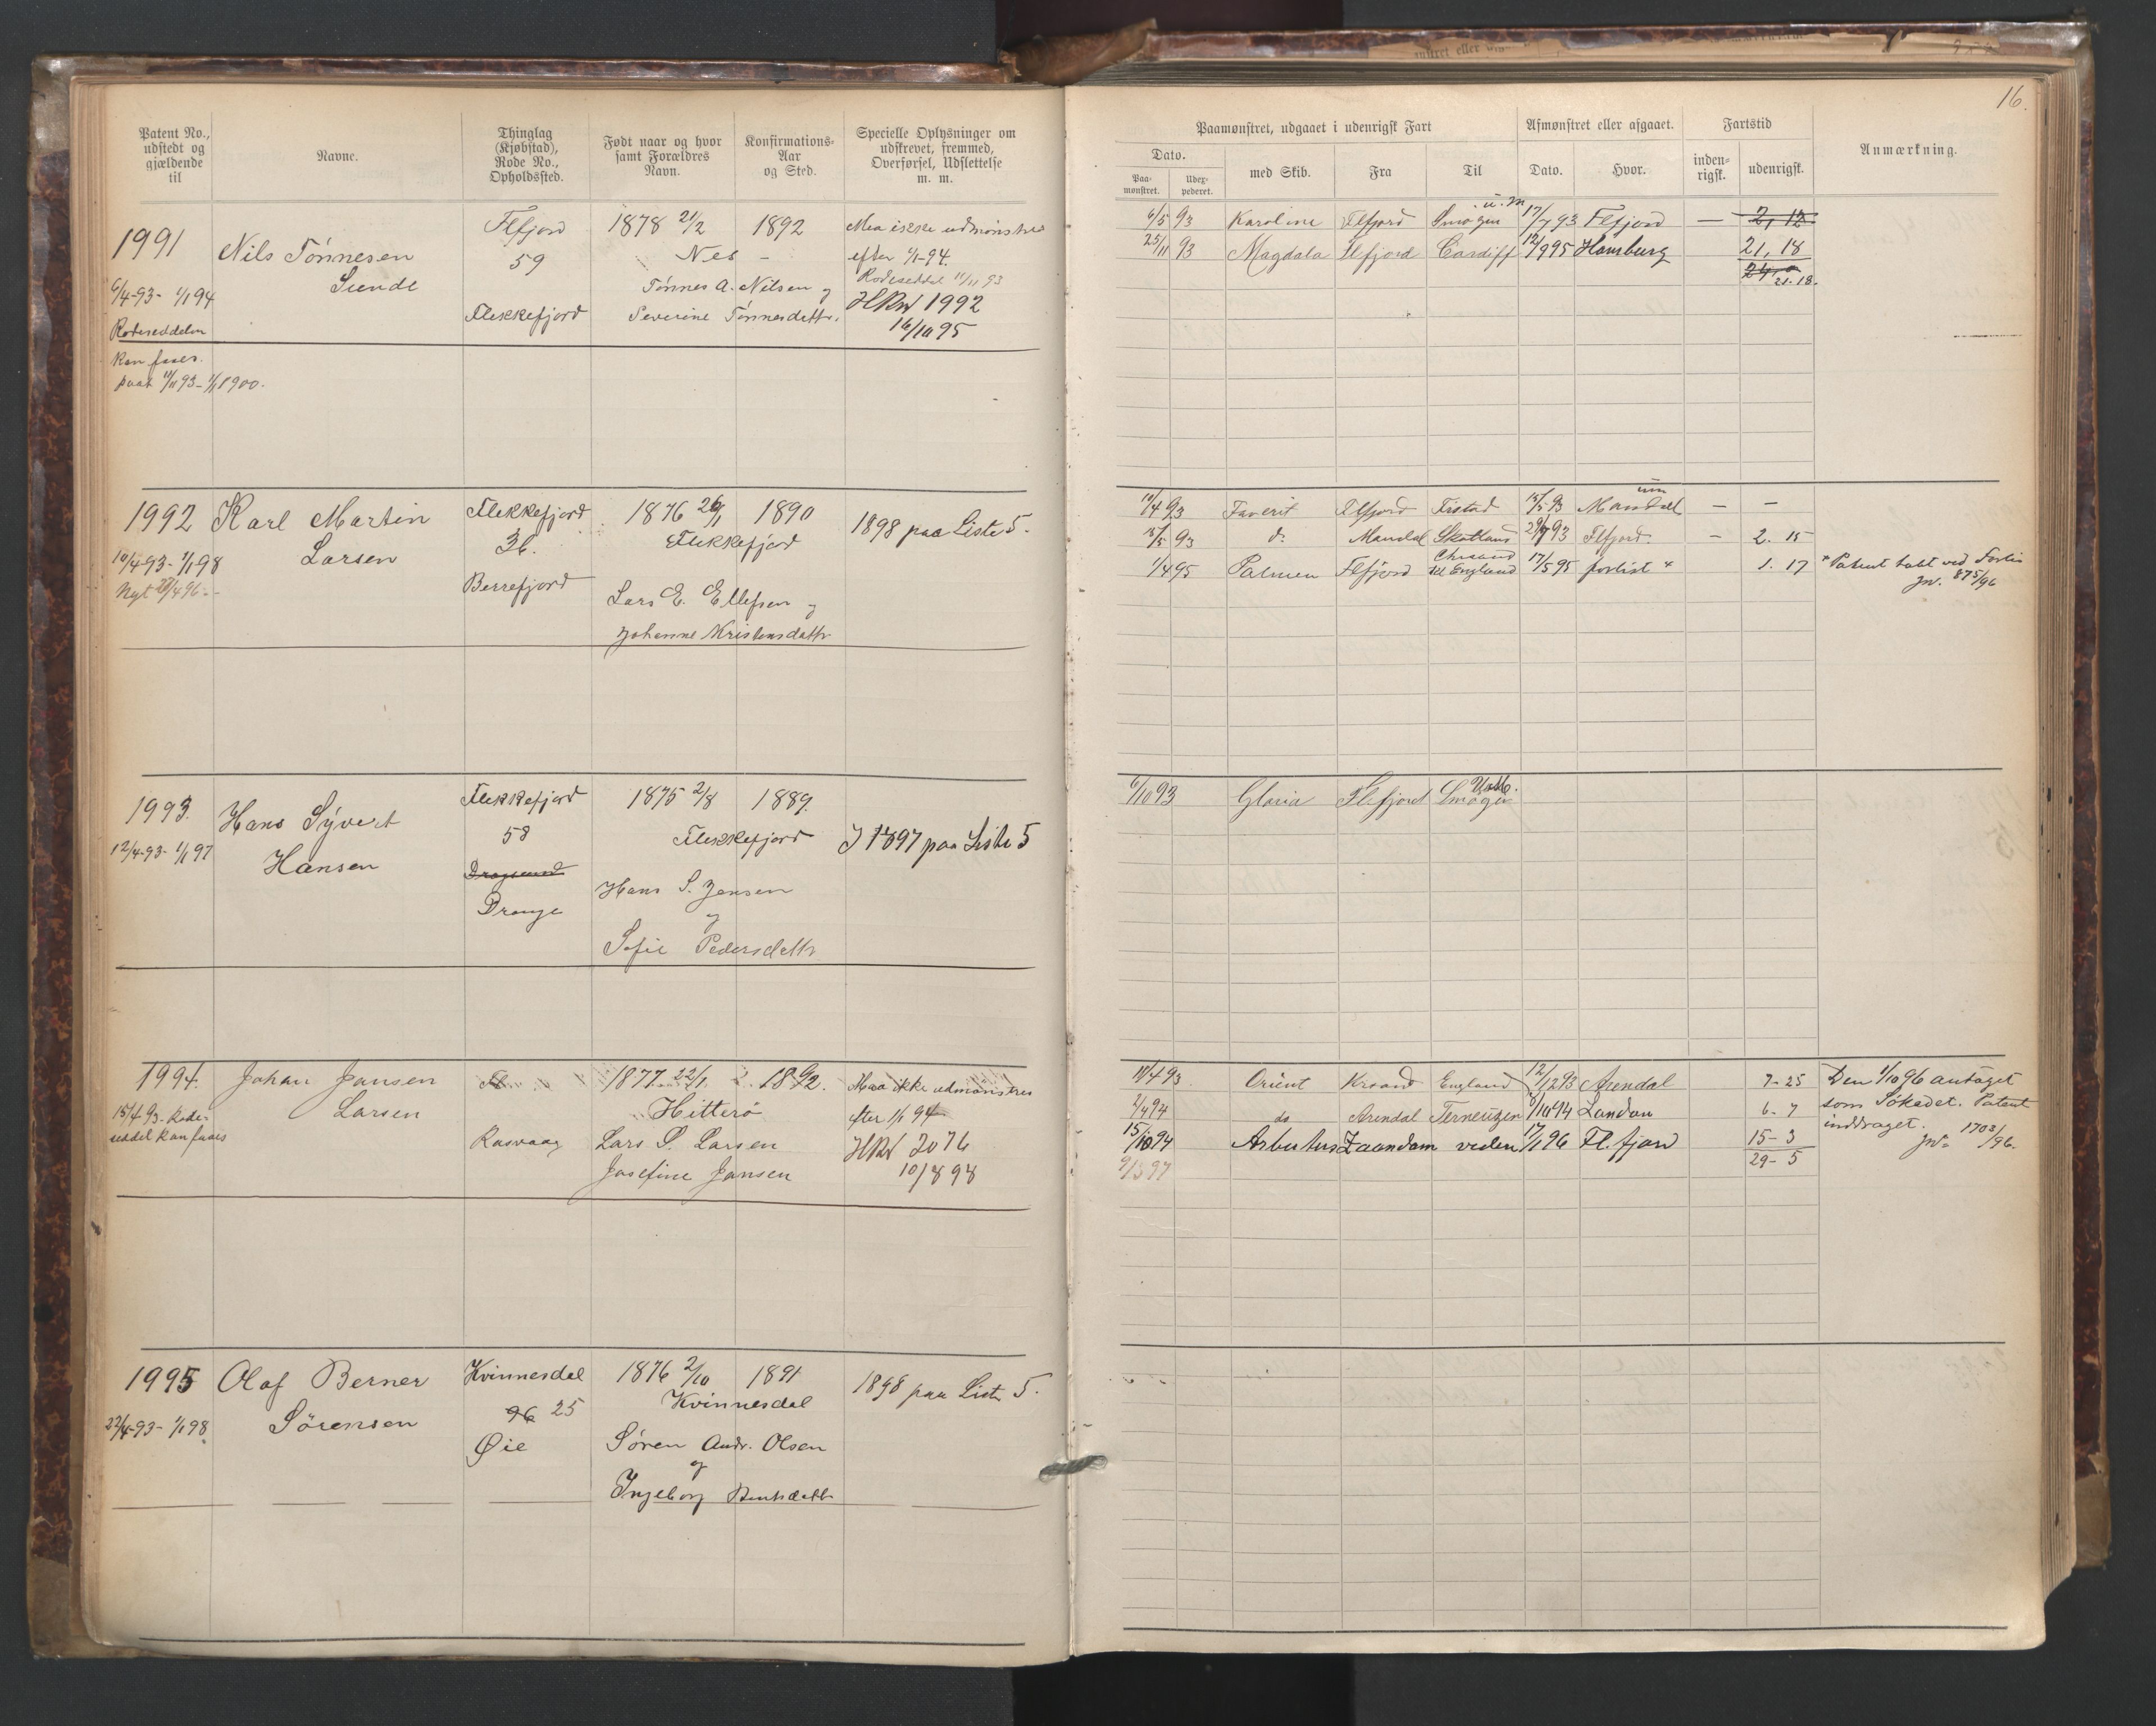 16.
Patent No., udstedt og gjældende til
Navne.
Thinglag (Kjøbstad), Rode No., Opholdssted.
Født naar og hvor samt Forældres Navn.
Konfirmations-Aar og Sted.
Specielle Oplysninger om udskrevet, fremmed, Overførsel, Udslettelse m. m.
Paamønstret, udgaaet i udenrigsk Fart
Dato.
Paa-mønstret.
Udex-pederet.
med Skib.
Fra
Til
Afmønstret eller afgaaet.
Dato.
Hvor.
Fartstid
inden-rigsk.
udenrigsk.
Anmærkning.
1991
6/4-93- 1/1 94
Rodeseddelen
kan faaes.
paat 11/11 93 - 1/1 1900.
Nils Tönnesen
Siende
Flfjord
59
Flekkefjord
1878 21/2
Nes -
Tönnes A. Nilsen og
Severine Tönnesdattr.
1892
Maa ikke udmönstres
efter 1/1-94.
Rodeseddel 11/11 93
HRN 1992
16/10 95
6/5 93 Karoline Flfjord Smögen u.m 17/7 93 Flfjord — 2, 12
25/11 93 Magdala Flfjord Cardiff 12/9 95 Hamburg 21, 18
21. 18.
1992
10/4-93- 1/1 98
Nyt 28/4 96. -
Karl Martin
Larsen
Flekkefjord
36.
Berrefjord
1876 26/1 1890
Flekkefjord
Lars E. Ellefsen og
Johanne Kristensdattr
1898 paa Liste 5.
10/4 93 Favorit Flfjord Fristad 15/5 93 Mandal um — —
15/5 93 do Mandal Skotland 29/7 93 Flfjord. — 2. 15
1/4 95 Palmen Flfjord Chrsand til England 17/5 95 forlist + 1. 17
+ Patent tabt ved Forlis
Jn. 875/96
1993.
12/4-93- 1/1 97
Hans Syvert
Hansen
Flekkefjord
58
Dragesund
Drange
1875 2/8 1889.
Flekkefjord
Hans S. Jensen
og
Sofie Pedersdattr
I 1897 paa Liste 5
6/10 93 Gloria Flfjord Smögen
1994.
15/4 93. Rode-
seddel kan faaes
Johan Jansen
Larsen
Fl
Rasvaag
1877 22/1 1892.
Hitterö
Lars S. Larsen
Josefine Jansen
Maa ikke udmönstres
efter 1/1 94
HRN 2076
10/8 98
18/4 93. Orient Krsand England 12/12 93 Arendal 7-25
2/4 94 do Arendal Terneuzen 9/10 94 London 6-7
15/10 94 Arbutus Zaandam veden 17/1 96 Fl.fjord 15-3
9/3 97
29-5
Den 1/10 96 antaget
som Sökadet. Patent
inddraget.
Jn= 1703/96.
1995
22/4-93- 1/1 98.
Olaf Berner
Sörensen
Kvinnesdal
96 25
Øie
1876 2/10 1891
Kvinnesdal
Sören Andr. Olsen
og
Ingeborg Berntsdattr
1898 paa Liste 5.